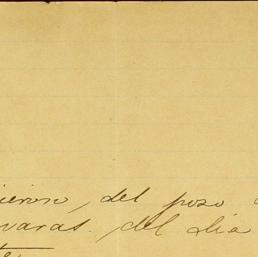 ieron, del poso
varas. del dia